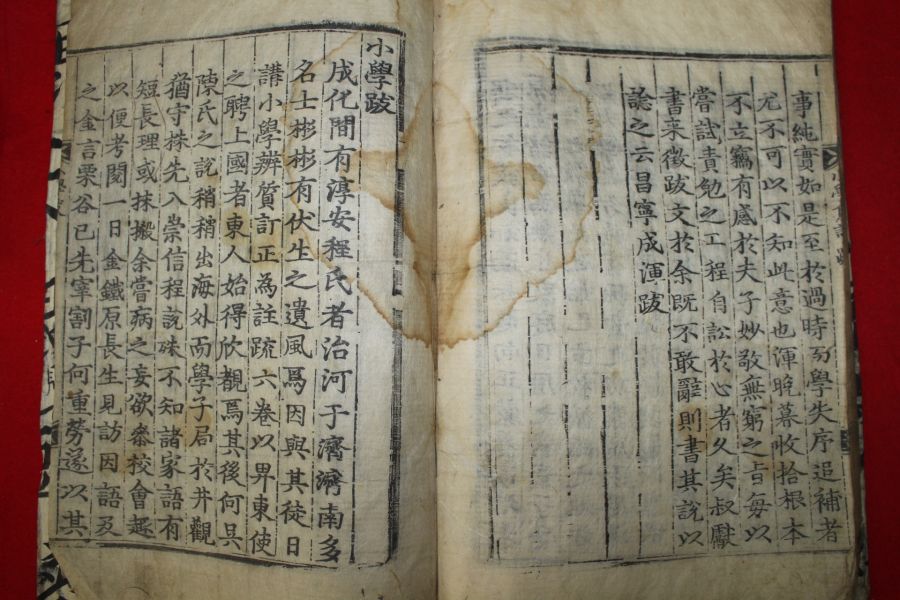 事純實如是至於過時而學失序追補者
尤不可以不知此意也渾晚暮收拾根本
不立竊有感於夫子妙敬無窮之旨每以
嘗試責勉之工程自訟於心者久矣叔獻
書来徵跋文於余既不敢辭則書其說以
諗之云昌寧成渾跋
小學跋
成化間有淳安程氏者治河于濟濟南多
名士彬彬有伏生之遺風焉因與其徒日
講小學辨質訂正為註疏六卷以畀東使
之聘上國者東人始得欣覩焉其後何吳
陳氏之說稍稍出海外而學子局於井觀
猶守株先入崇信程說殊不知諸家語有
短長理或抹摋余嘗病之妄欲叅校會起
以便考閱一日金鐵原長生見訪因語及
之金言栗谷已先宰割子何重勞遂以其